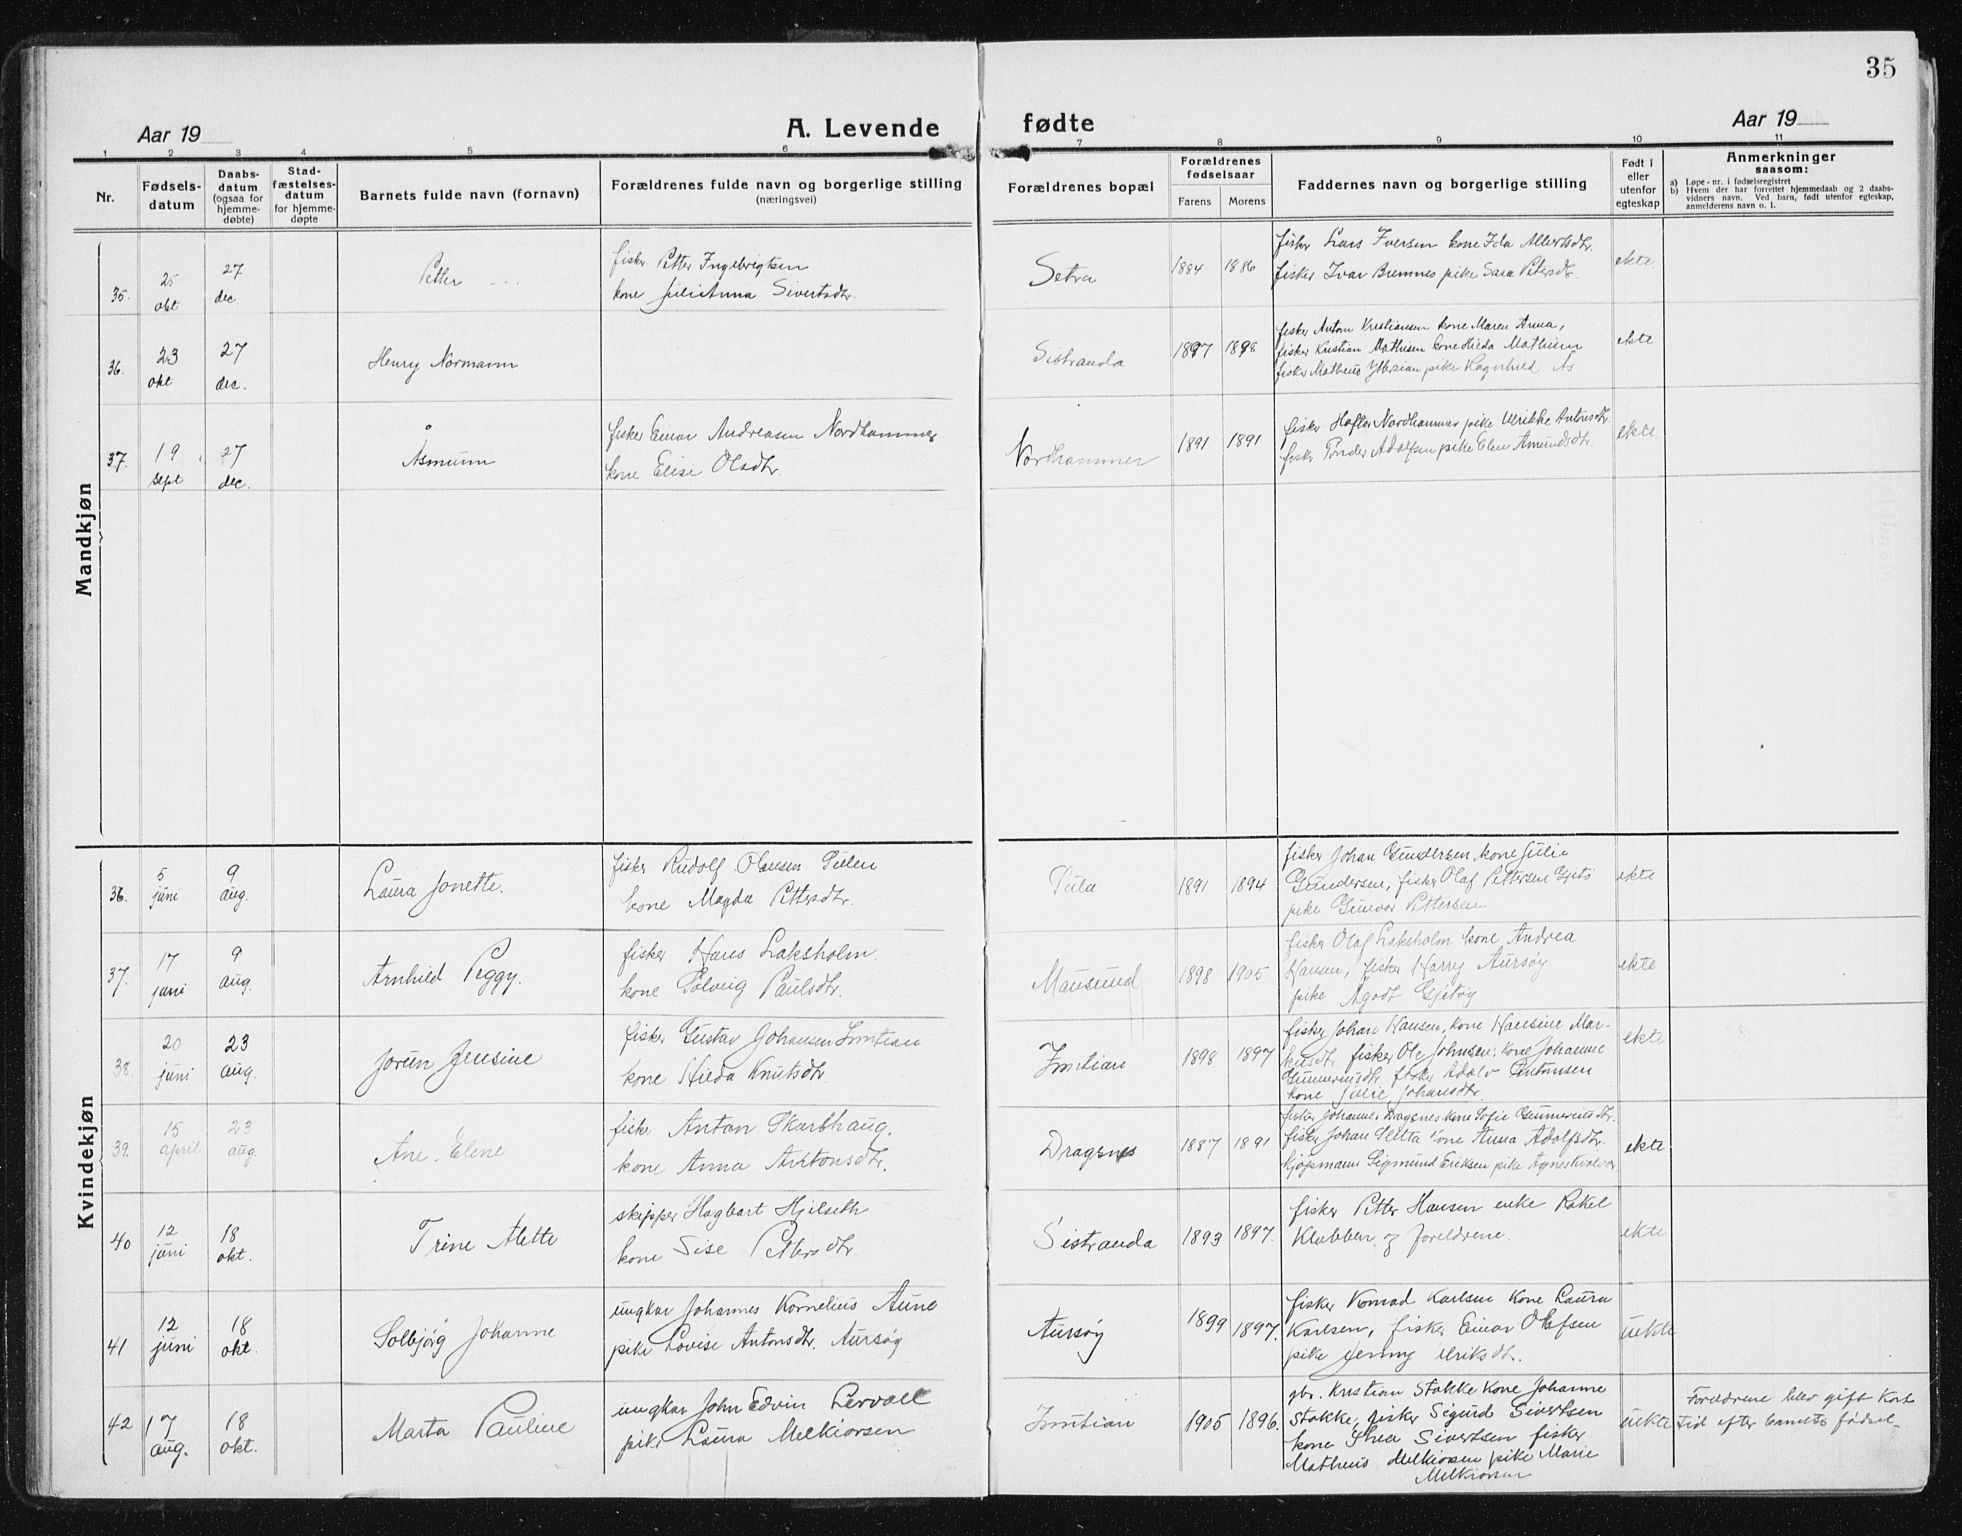 35
Aar 19
A. Levende
fødte
Aar 19
1 2 3 4 5 6 7 8 9 10 11
Nr.
Fødselsdatum
Daabsdatum (ogsaa for hjemmedøbte)
Stadfæstelsesdatum for hjemmedøpte
Barnets fulde navn (fornavn)
Forældrenes fulde navn og borgerlige stilling
(næringsvei)
Forældrenes bopæl
Forældrenes fødselsaar
Farens Morens
Faddernes navn og borgerlige stilling
Født i eller utenfor egteskap
Anmerkninger
saasom:
a) Løpe-nr. i fødselsregistret
b) Hvem der har forrettet hjemmedaab og 2 daabsvidners navn. Ved barn, født utenfor egteskap, anmelderens navn o. l.
Mandkjøn
35. 25 okt 27 dec Petter
fisker Petter Ingebrigtsen
kone Juli Anna Sivertsdtr.
Setra 1884 1886
fisker Lars Iversen kone Ida Albertsdtr.
fisker Ivar Bremnes pike Sara Petersdtr.
ekte
36. 23 okt 27 dec. Henry Normann
Sistranda 1897 1898
fisker Anton Kristiansen kone Maren Anna,
fisker Kristian Mathisen kone Hilda Mathisen
fisker Matheus Ytterian pike Ragnhild Ås
ekte
37. 19 sept 27 dec. Åsmunn
fisker Einar Andreasen Nordhammer
kone Elise Olsdtr.
Nordhammer 1891 1891
fisker Hafter Nordhammer pike Ulrikke Antonsdtr
fisker Peder Adolfsen pike Elen Amundsdtr.
ekte
Kvindekjøn
36. 5 juni 9 aug. Laura Jonette.
fisker Rudolf Olausen Sulen
kone Magda Pettersdtr.
Sula 1891 1894
fisker Johan Gundersen, kone Julie
Gundersen, fisker Olaf Pettersen Gjetö
pike Gunvor Pettersen
ekte
37. 17 juni 9 aug. Arnhild Peggy.
fisker Hans Laksholm.
kone Solveig Paulsdtr.
Mausund 1898 1905
fisker Olaf Laksholm kone Andrea
Hansen, fisker Harry Aursøy
pike Agodt Gjetøy
ekte
38. 20 juni 23 aug. Jorun Jensine
fisker Gustav Johansen Inntian
kone Hilda Knutsdtr.
Inntian 1898 1897
fisker Johan Hansen, kone Hansine Mar-
kusdtr fisker Ole Johnsen, kone Johanne
Gunneriusdtr fisker Adolv Antonsen
kone Julie Johansdtr
ekte
39. 15 april 23 aug. Ane Eline
fisker Anton Skarshaug.
kone Anna Antonsdtr.
Dragsnes 1887 1891
fisker Johannes Dragsnes kone Sofie Gunneriusdtr.
fisker Johan Sletta kone Anna Adolfsdtr.
kjøpmann Sigmund Eriksen pike Agnes Kvalvær
ekte
40 12 juni 18 okt. Trine Alette
skipper Hagbart Hjelseth
kone Sise Pettersdtr
Sistranda 1893 1897.
fisker Petter Hansen enke Rakel
Klubben og foreldrene.
ekte
41 12 juni 18 okt. Solbjørg Johanne
ungkar Johannes Kornelius Aune
pike Lovise Antonsdtr. Aursøy
Aursøy 1899 1897.
fisker Konrad Karlsen kone Laura
Karlsen, fisker Einar Olsen
pike Jenny Ulriksdtr.
uekte
42 17 aug. 18 okt. Marta Pauline
ungkar John Edvin Lervåll
pike Laura Melkiorsen
Inntian 1905 1896.
gbr. Kristian Stokke kone Johanne
Stokke, fisker Sigurd Sivertsen
kone Thea Sivertsen fisker
Matheus Melkiorsen pike Marie
Melkiorsen
uekte
Foreldrene blev gift kort
tid efter barnets fødsel.